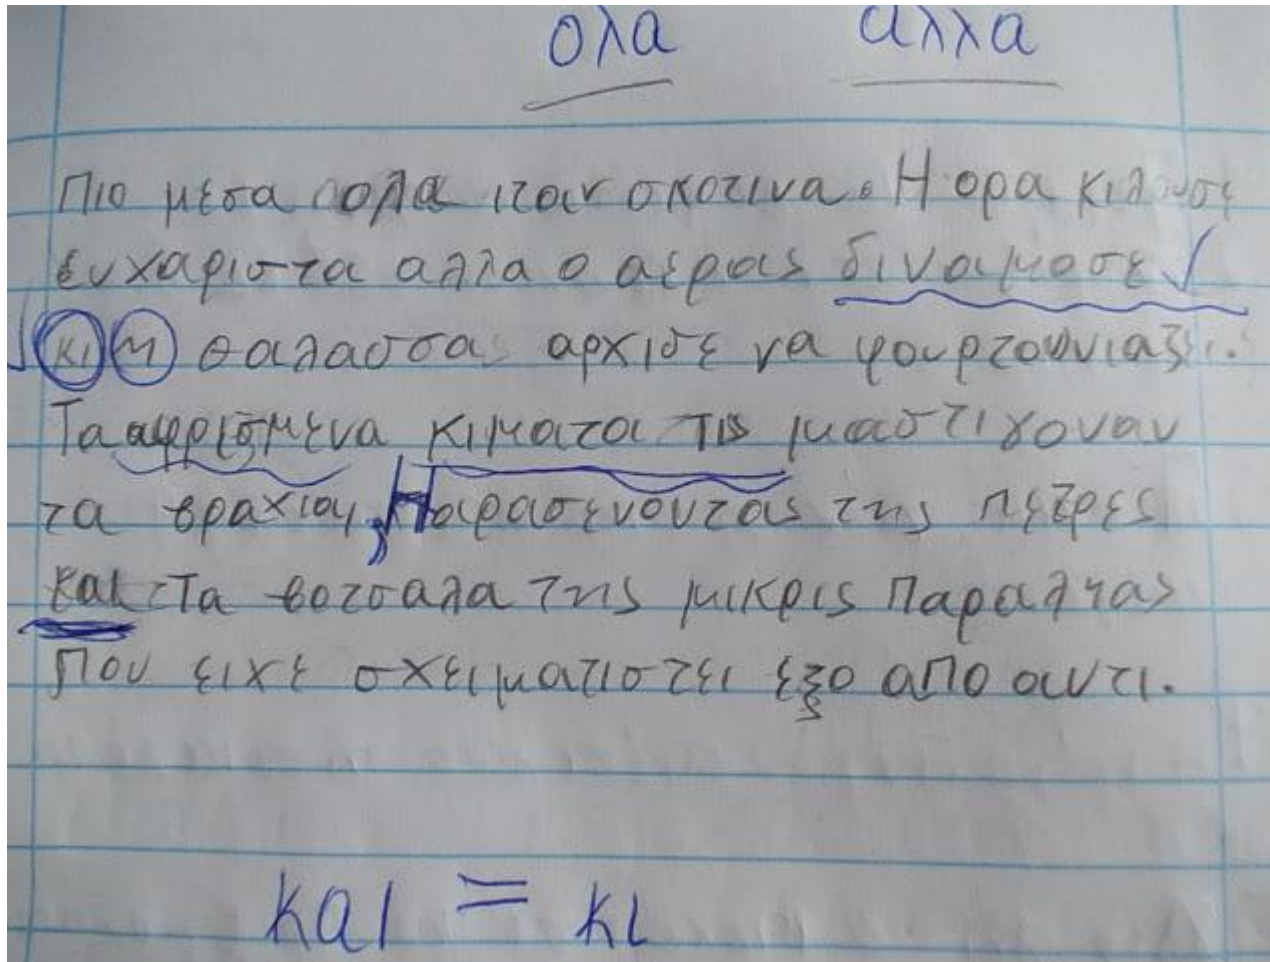 ολα αλλα
Πιο μεσα ολα ιταν σκοτινα. Η ορα κιλουσε
ευχαριστα αλλα ο αερας διναμοσε
κι η θαλασσας αρχισε να φουρτουνιαζει.
Τα αφρισμενα κιματα τις μαστιγοναν
τα βραχια, Παρασενοντας της πετρες
και Τα βοτσαλα της μικρις Παραλιας
Που ειχε σχειματιστει εξο απο αυτι.
και = κι